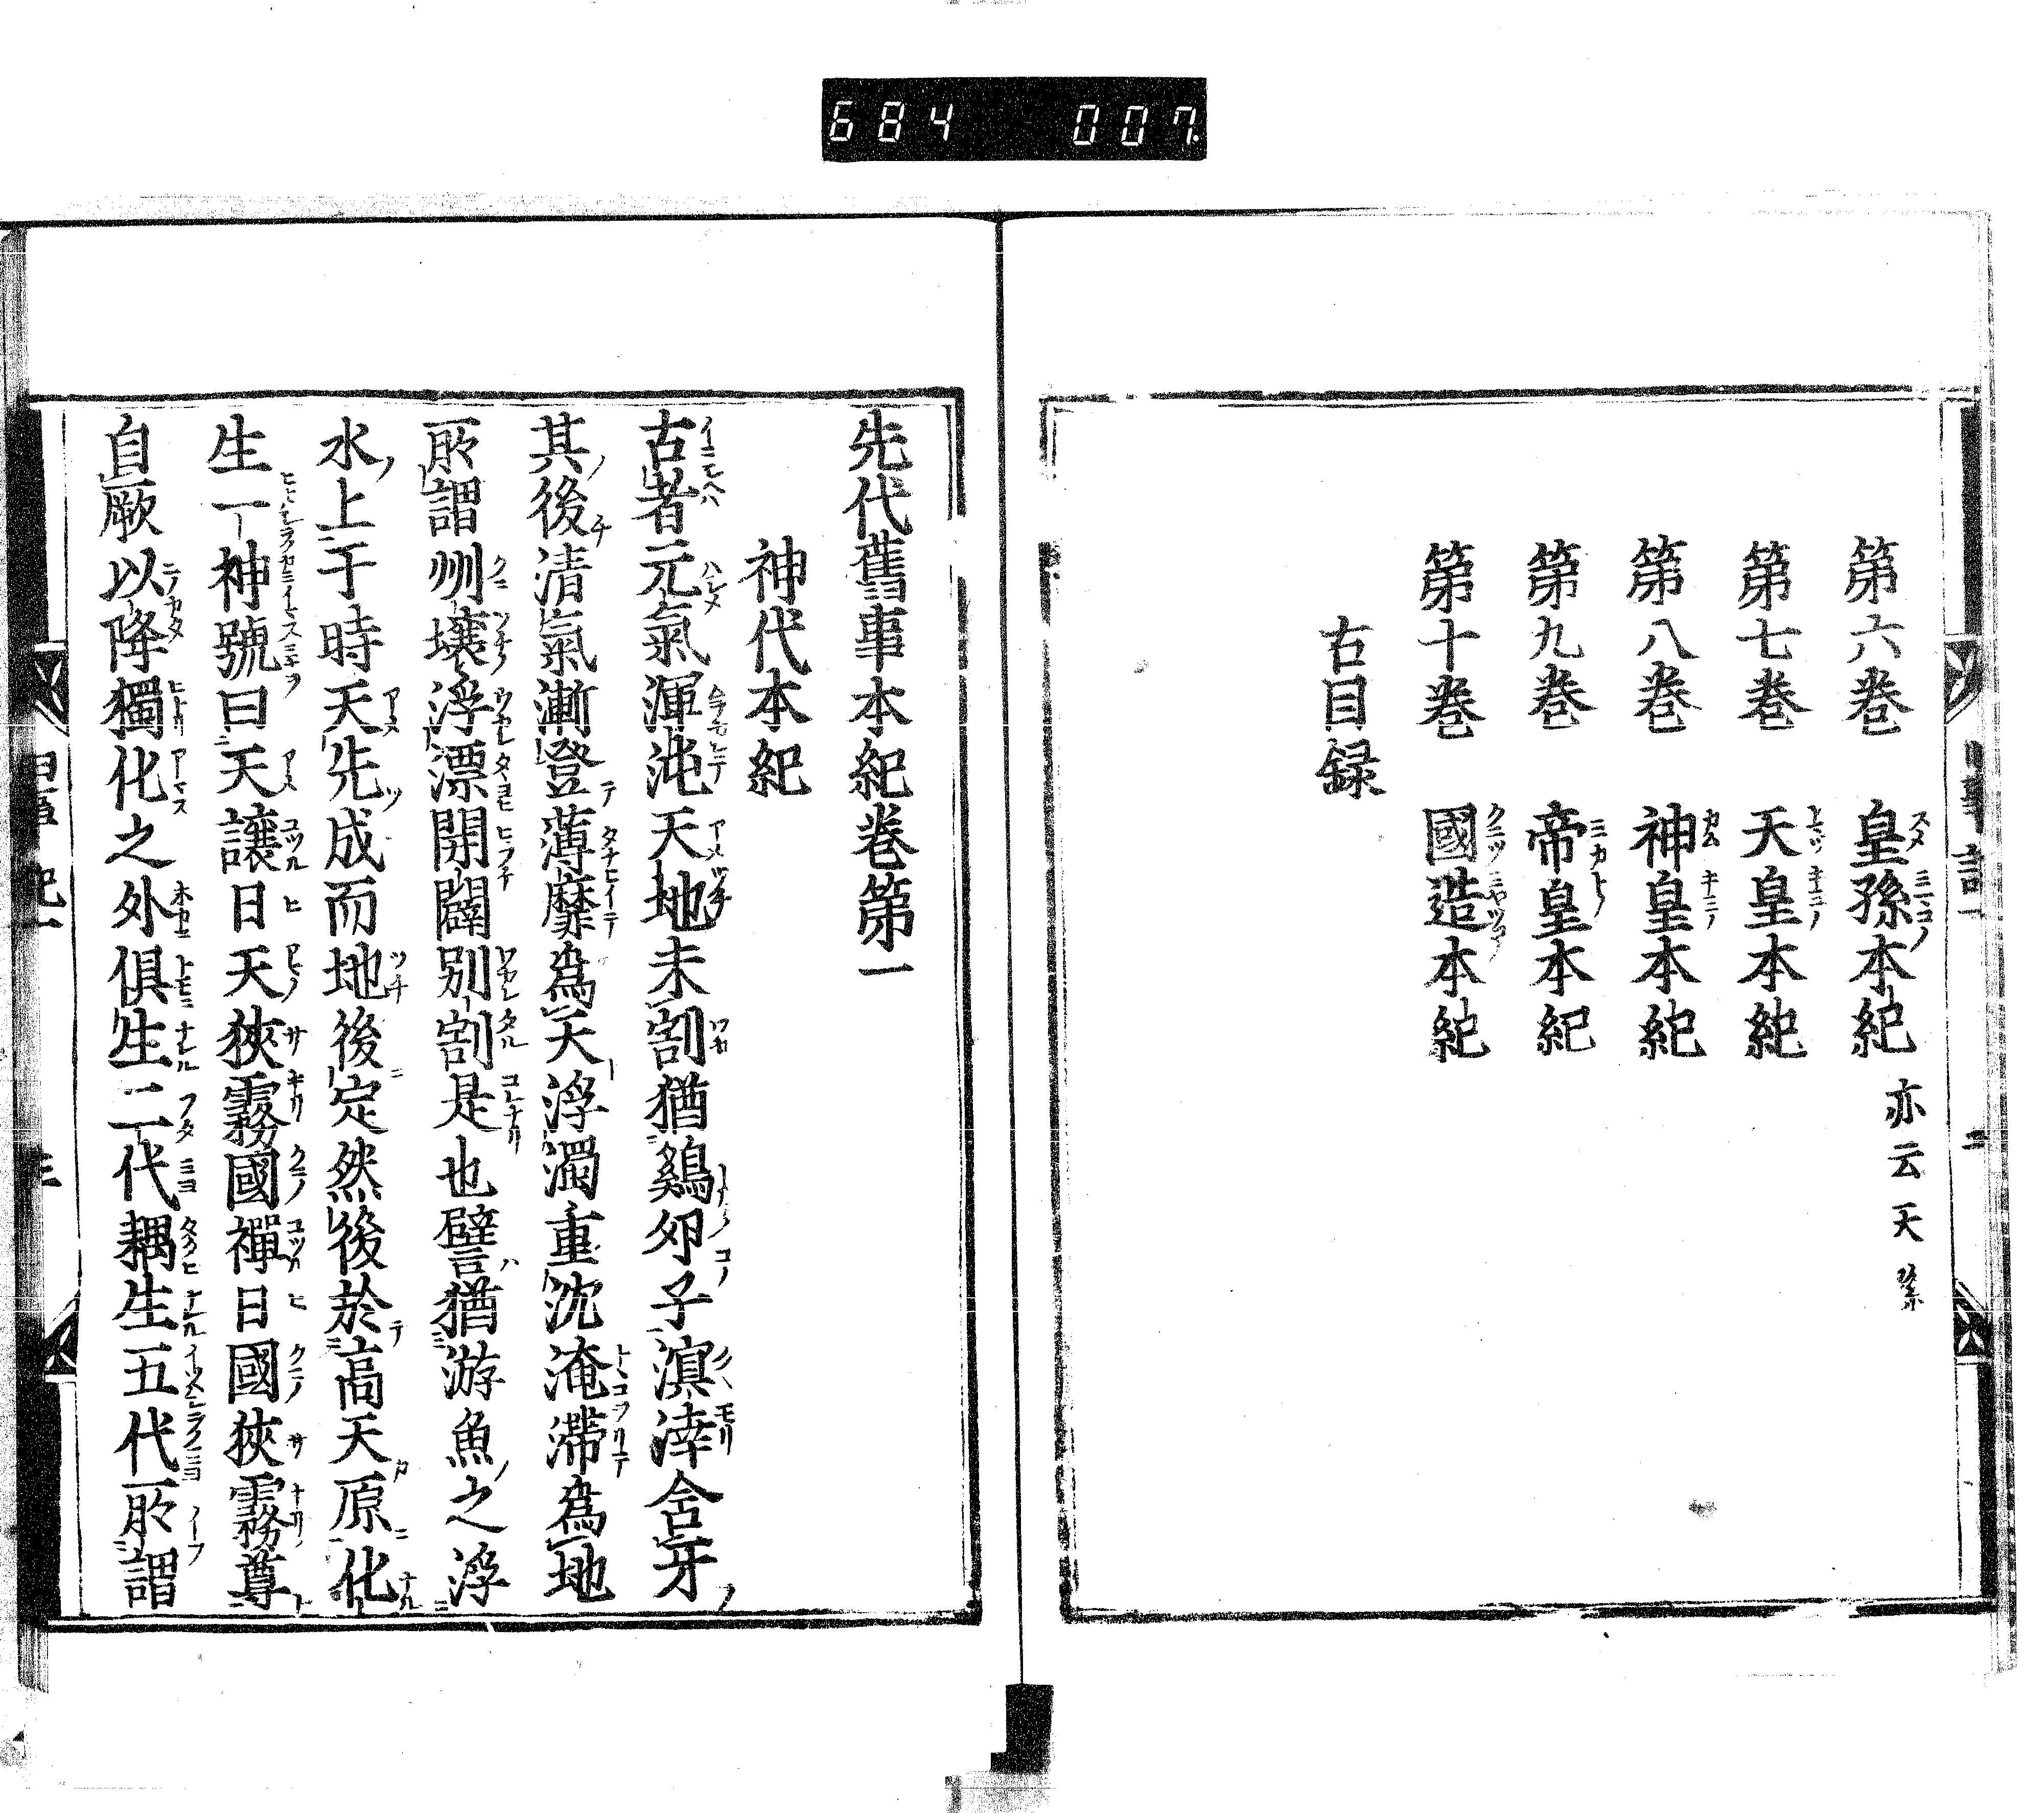 684 007.
第六巻 皇孫本紀 亦云天孫
第七巻 天皇本紀
第八巻 神皇本紀
第九巻 帝皇本紀
第十巻 國造本紀
右目録
先代舊事本紀巻第一
神代本紀
古者元氣渾沌天地未割猶鷄卵子溟涬含牙
其後清氣漸登薄靡為天浮濁重沈淹滞為地
所謂州壤浮漂開闢別割是也譬猶游魚之浮
水上于時天先成而地後定然後於高天原化
生一神號曰天讓日天狹霧國禪日國狹霧尊
自厥以降獨化之外俱生二代耦生五代所謂